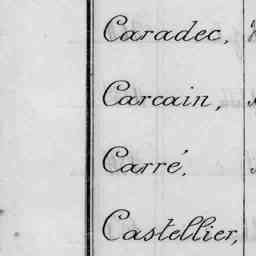 Caradec,
Carcain,
Carré,
Castellier,